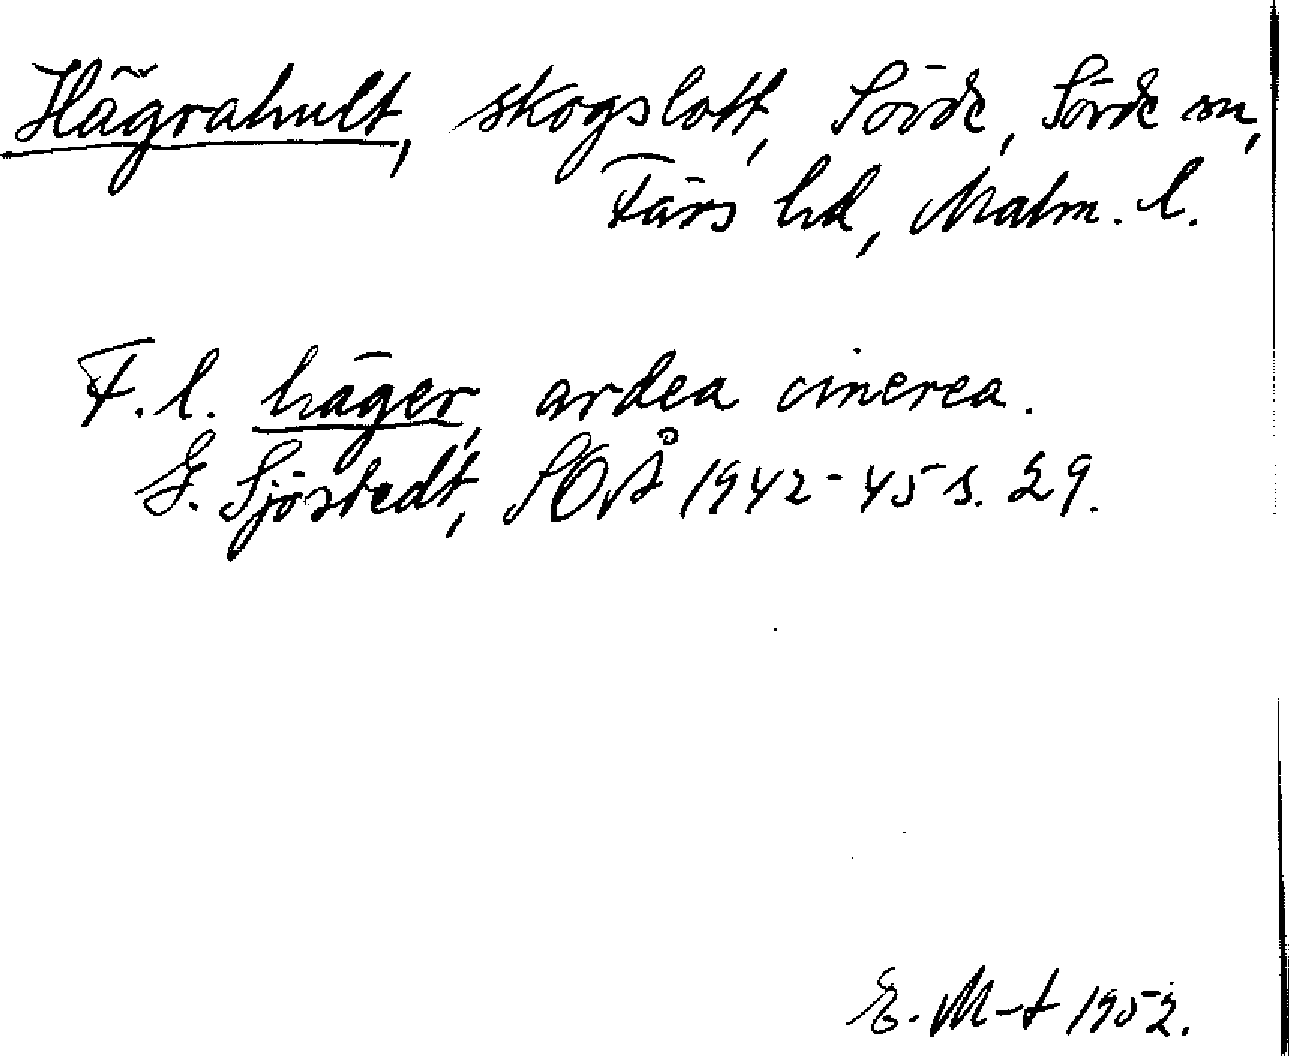 Hägrahult, skogslott, Sövde, Sövde sn,
Färs hd, Malm. l.
F. l. häger, ardea cinerea.
G. Sjöstedt, SOÅ 1942-45 s. 29.
E. M-t 1952.